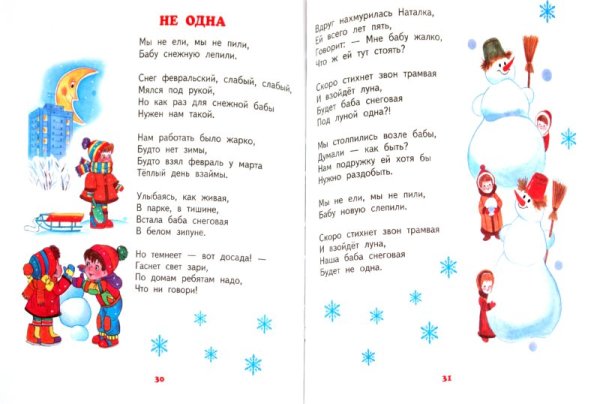 НЕ ОДНА
Мы не ели, мы не пили,
Бабу снежную лепили.
Снег февральский, слабый, слабый,
Мялся под рукой,
Но как раз для снежной бабы
Нужен нам такой.
Нам работать было жарко,
Будто нет зимы,
Будто взял февраль у марта
Тёплый день взаймы.
Улыбаясь, как живая,
В парке, в тишине,
Встала баба снеговая
В белом зипуне.
Но темнеет — вот досада! —
Гаснет свет зари,
По домам ребятам надо,
Что ни говори!
30
Вдруг нахмурилась Наталка,
Ей всего лет пять,
Говорит: — Мне бабу жалко,
Что ж ей тут стоять?
Скоро стихнет звон трамвая
И взойдёт луна,
Будет баба снеговая
Под луной одна?!
Мы столпились возле бабы,
Думали — как быть?
Нам подружку ей хотя бы
Нужно раздобыть.
Мы не ели, мы не пили,
Бабу новую слепили.
Скоро стихнет звон трамвая
И взойдёт луна,
Наша баба снеговая
Будет не одна.
31